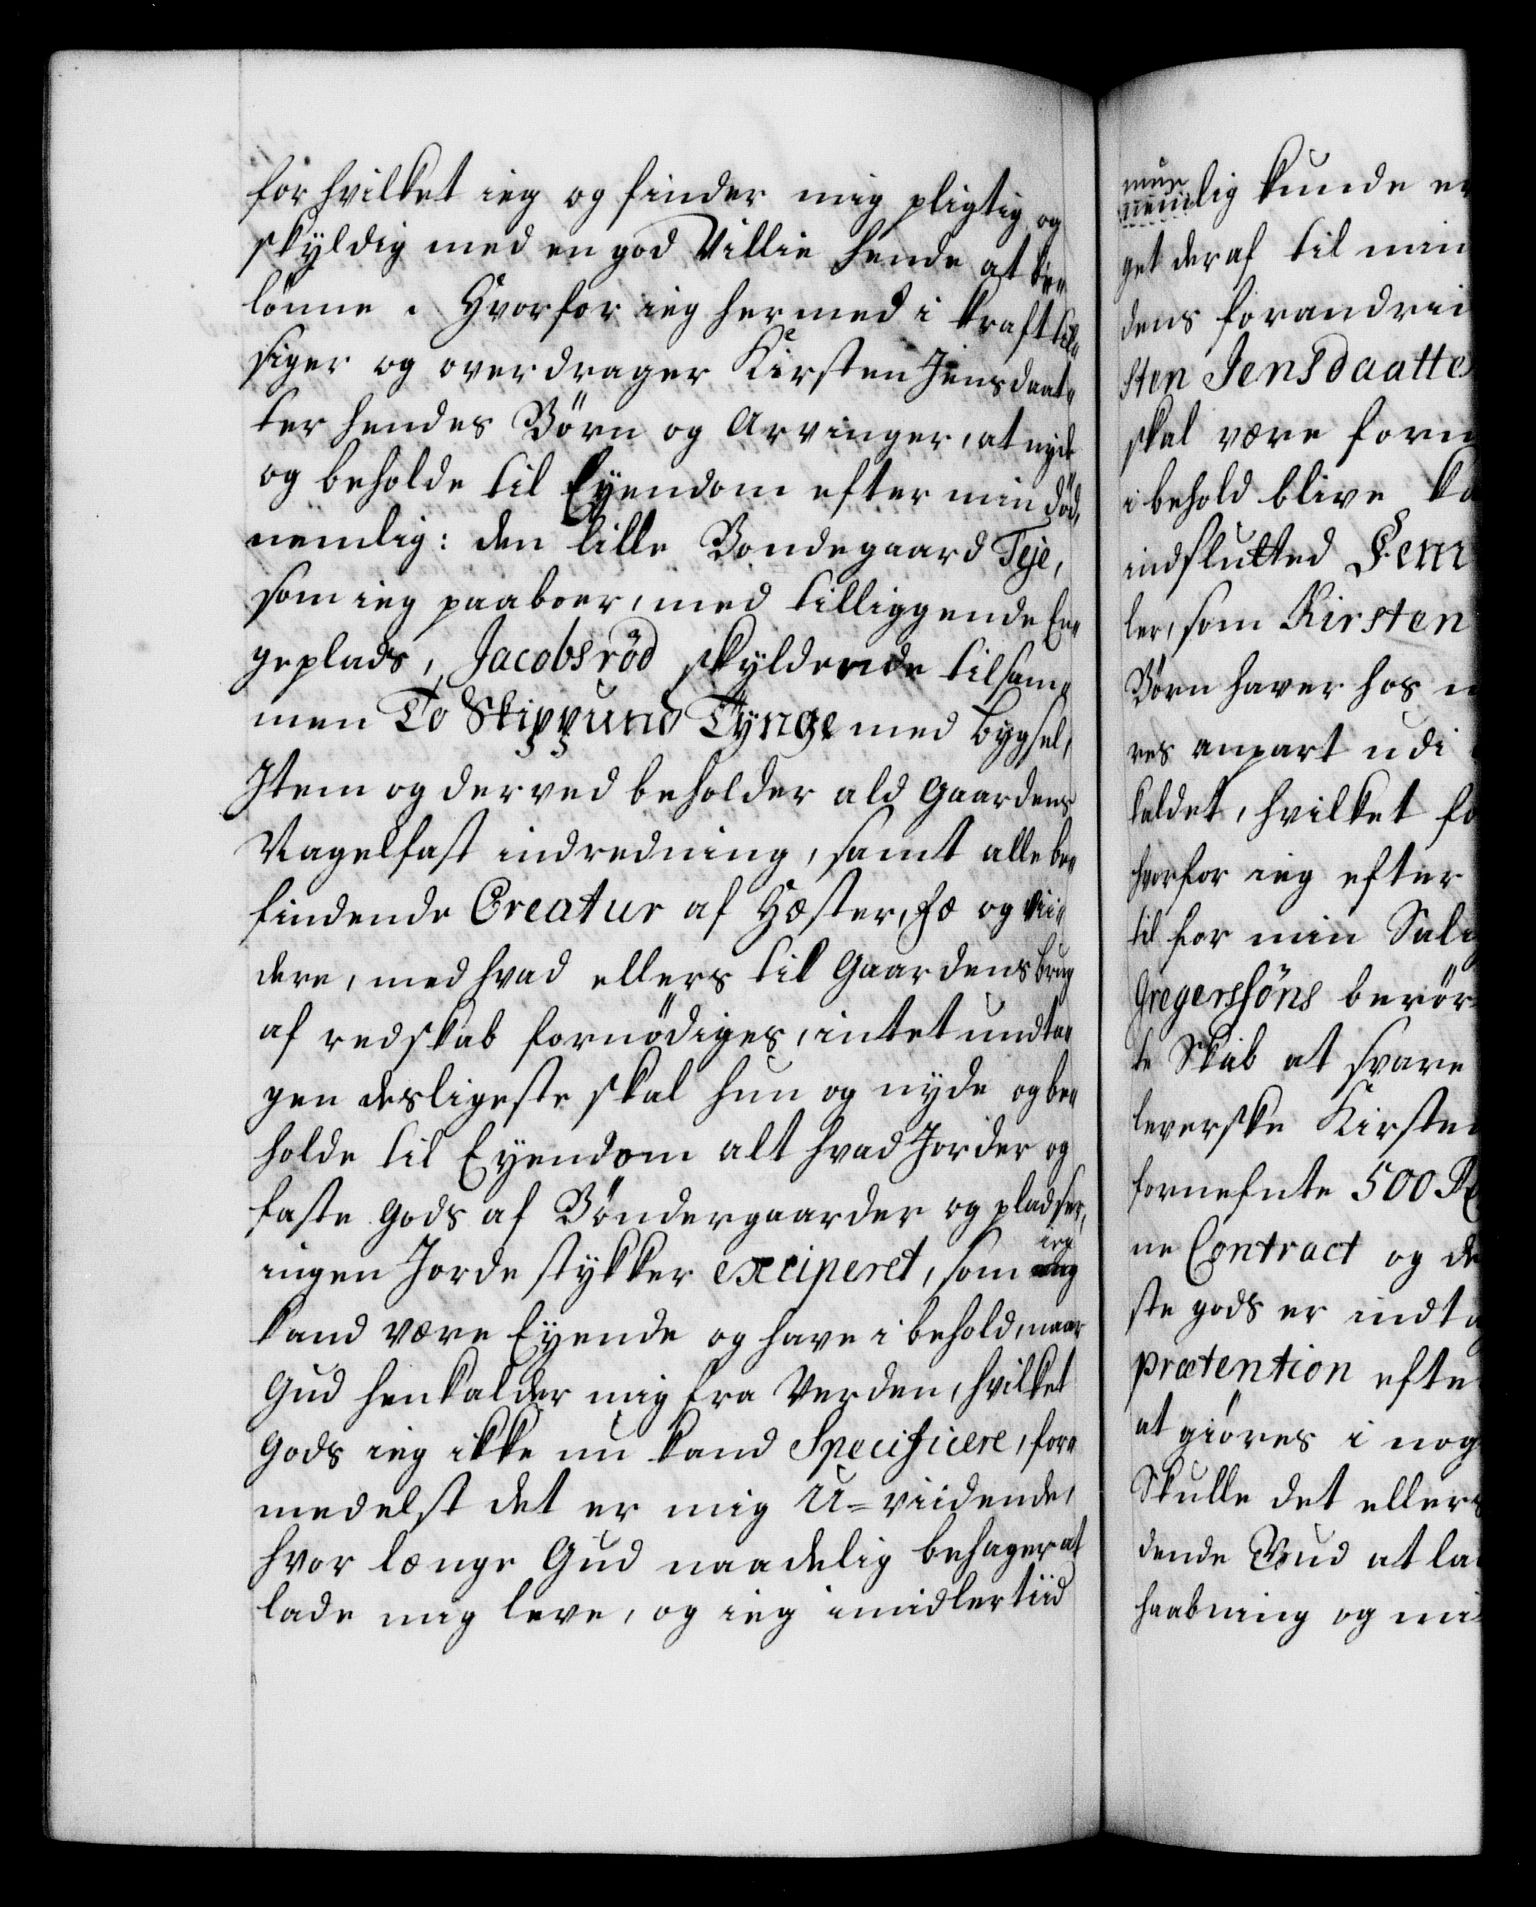 for hvilket ieg og finder mig pligtig og
skyldig med en god Villie hende at be„
lønne. Hvorfor ieg hermed i kraft til„
siger og overdrager Kirsten Jensdaat„
ter hendes Børn og Arvinger, at nyde
og beholde til Eÿendom efter min død,
nemlig: den lille Bondegaard Teje,
som ieg paaboer, med tilliggende En„
geplads, Jacobsröd skyldende tilsam„
men To Skippund Tÿnge med bygsel,
Item og derved beholder ald Gaardens
Nagelfast indredning, samt alle be„
findende Creatur af Hæster, Fæ og vii„
dere, med hvad ellers til Gaardens brug
af redskab fornødiges, intet undta„
gen desligeste skal hun og nyde og be„
holde til Eÿendom alt hvad Jorder og
faste Gods af Bøndergaarder og pladser,
ingen Jorde stykker exciperet, som ieg
kand være Eÿende og have i behold, naar
Gud henkalder mig fra Verden, hvilket
Gods ieg ikke nu kand Specificere, for„
medelst det er mig U=viidende,
hvor længe Gud naadelig behager at
lade mig leve, og ieg imidlertiid
lig kunde
get deraf til min
dens forandri
sten Jensdaatte
skal være forn
i behold blive
indslutted
ler, som Kirsten
Börn haver hos
res anpart udi
kaldet, hvilket fo
hvorfor ieg efter
til for min Sali
Gregersöns berör
te Skib at svare
leverske Kirsten
fornefnte 500 R
ne Contract og de
ste gods er indta
prætention efte
at giöres i nog
Skulle det ellers
dende Bud at la
haabning og mi